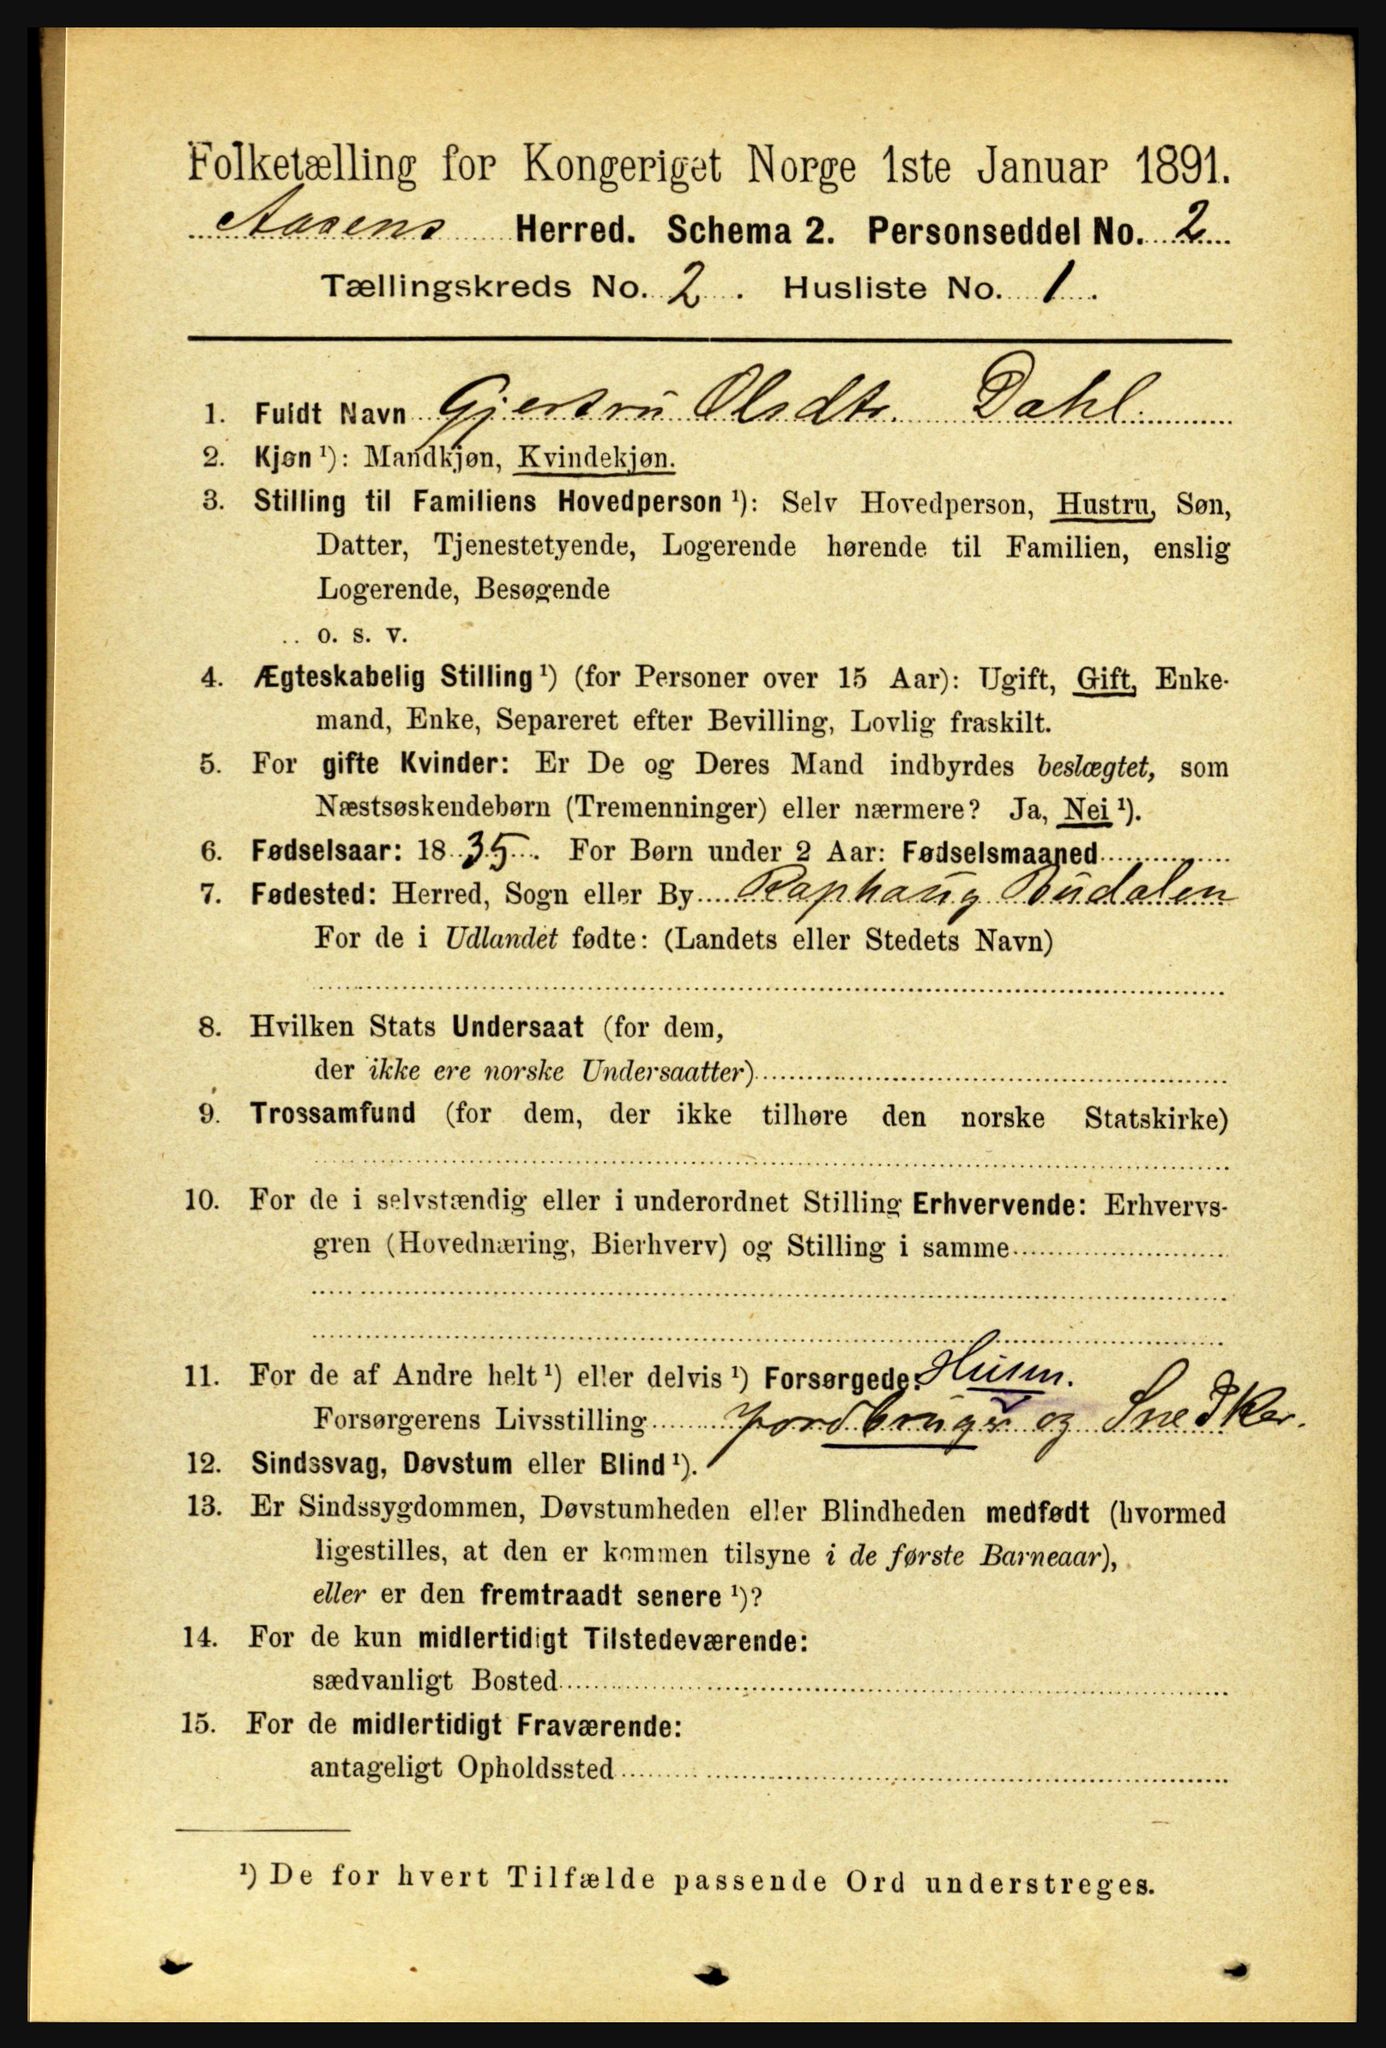 Folketælling for Kongeriget Norge 1ste Januar 1891.
Aasens Herred. Schema 2. Personseddel No. 2
Tællingskreds No. 2. Husliste No. 1.
1. Fuldt Navn Gjertru Olsdtr. Dahl.
2. Kjøn ¹): Mandkjøn, Kvindekjøn.
3. Stilling til Familiens Hovedperson ¹): Selv Hovedperson, Hustru, Søn,
Datter, Tjenestetyende, Logerende hørende til Familien, enslig
Logerende, Besøgende
.. o. s. v.
4. Ægteskabelig Stilling ¹) (for Personer over 15 Aar): Ugift, Gift, Enke-
mand, Enke, Separeret efter Bevilling, Lovlig fraskilt.
5. For gifte Kvinder: Er De og Deres Mand indbyrdes beslægtet, som
Næstsøskendebørn (Tremenninger) eller nærmere? Ja, Nei ¹).
6. Fødselsaar: 1835. For Børn under 2 Aar: Fødselsmaaned
7. Fødested: Herred, Sogn eller By Raphaug Budalen
For de i Udlandet fødte: (Landets eller Stedets Navn)
8. Hvilken Stats Undersaat (for dem,
der ikke ere norske Undersaatter)
9. Trossamfund (for dem, der ikke tilhøre den norske Statskirke)
10. For de i selvstændig eller i underordnet Stilling Erhvervende: Erhvervs-
gren (Hovednæring, Bierhverv) og Stilling i samme
11. For de af Andre helt ¹) eller delvis ¹) Forsørgede: Husm.
Forsørgerens Livsstilling Jordbruger og Snedker.
12. Sindssvag, Døvstum eller Blind ¹).
13. Er Sindssygdommen, Døvstumheden eller Blindheden medfødt (hvormed
ligestilles, at den er kommen tilsyne i de første Barneaar),
eller er den fremtraadt senere ¹)?
14. For de kun midlertidigt Tilstedeværende:
sædvanligt Bosted
15. For de midlertidigt Fraværende:
antageligt Opholdssted
¹) De for hvert Tilfælde passende Ord understreges.